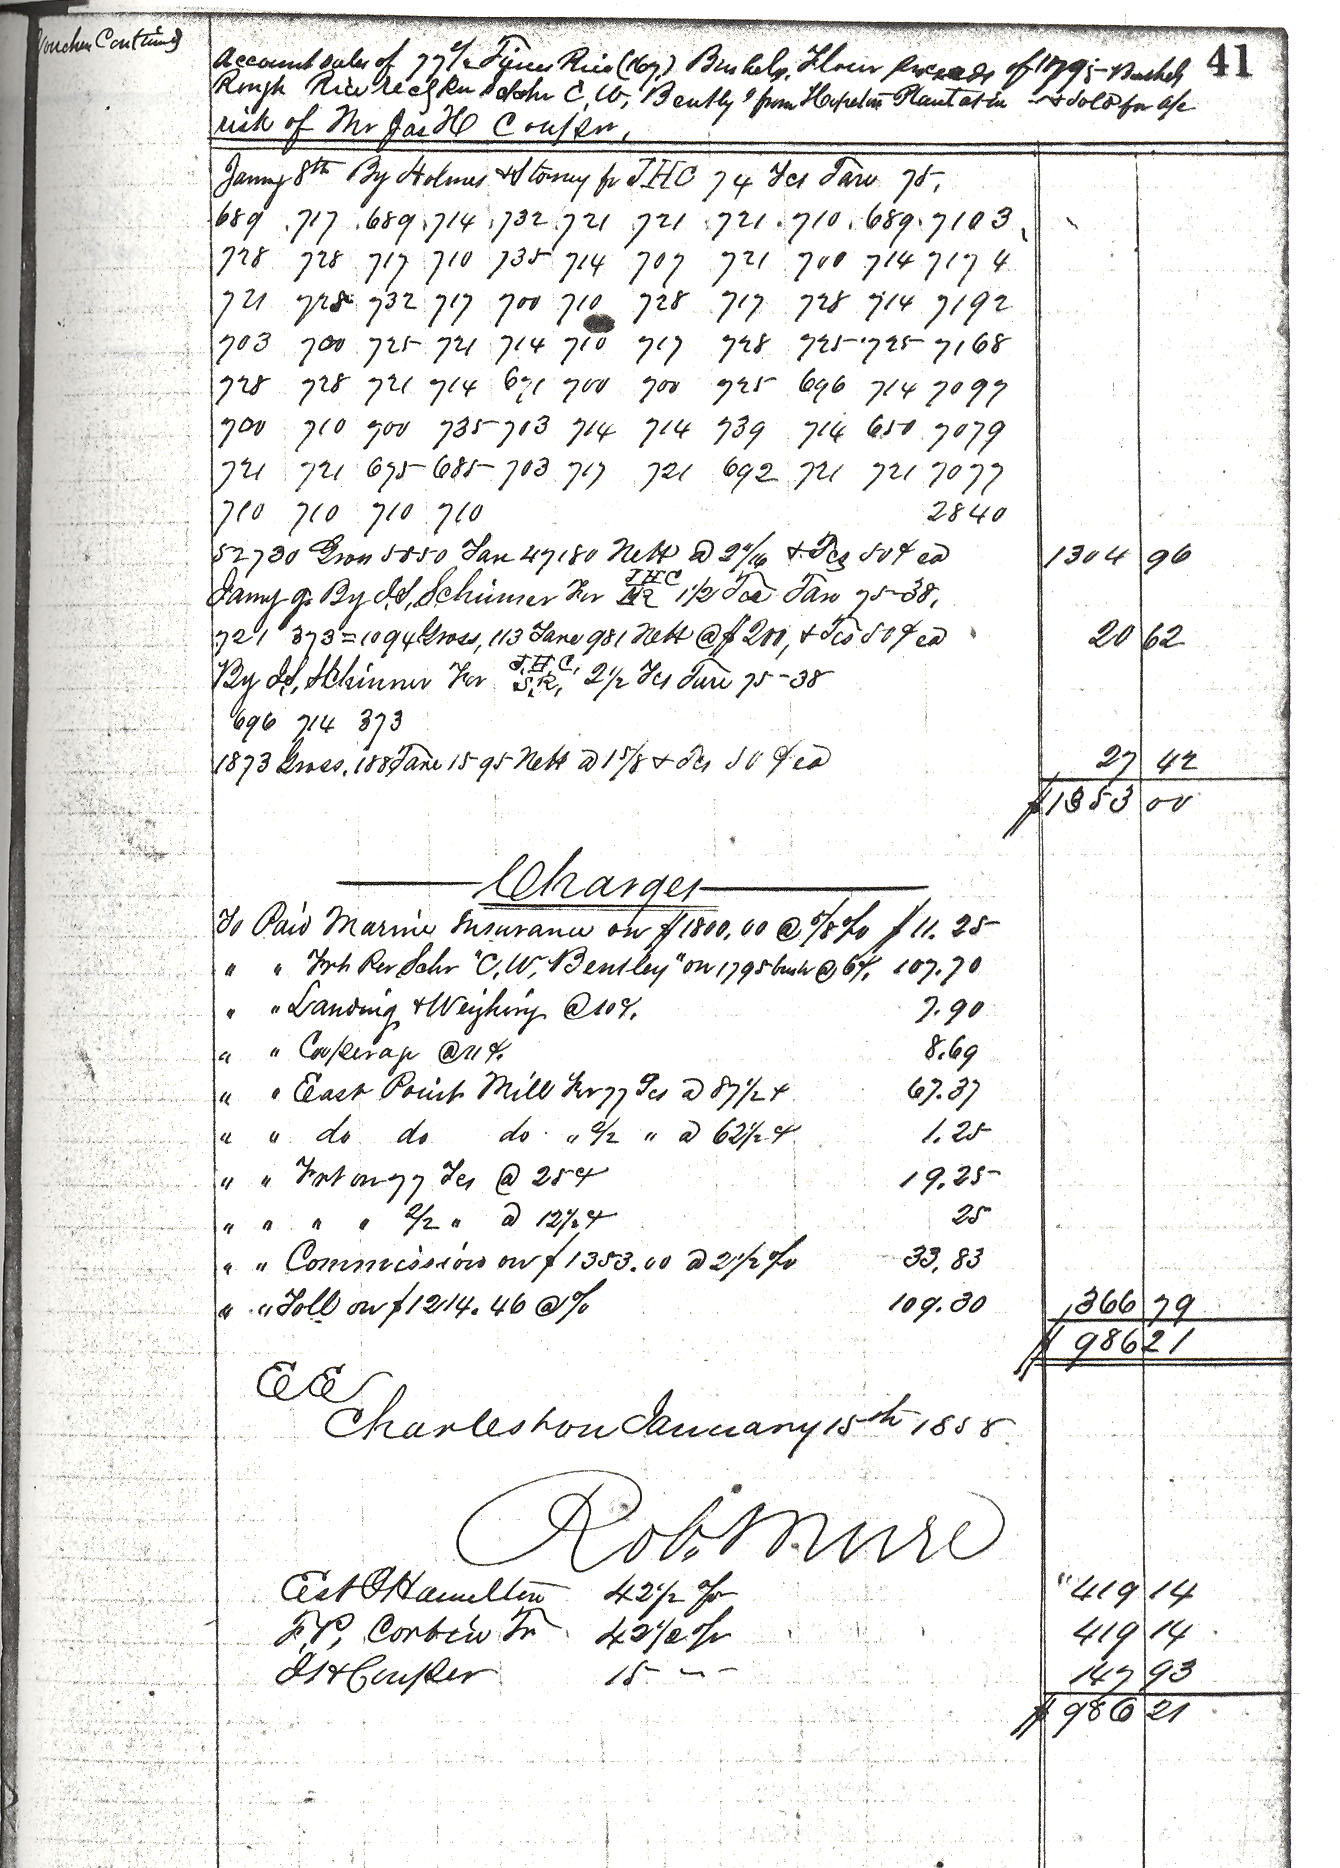 Voucher Continued
41
Account sales of 77 2/2 Tierces Rice (167) Bushels, Flour proceeds of 1795 Bushels
Rough Rice recd per Schr C, W, Bently" from Hopeton Plantation & sold for a/c
risk of Mr Jas H Couper,
Janny 8th By Holmes & Stoney fr JHC 74 Tcs Tare 75,
689 717 689 714 732 721 721 721 710 689 7103
728 728 717 710 735 714 707 721 700 714 7174
721 728 732 717 700 710 728 717 728 714 7192
703 700 725 721 714 710 717 728 725 725 7168
728 728 721 714 671 700 700 725 696 714 7097
700 710 700 735 703 714 714 739 714 650 7079
721 721 675 685 703 717 721 692 721 721 7077
710 710 710 710 2840
52730 Gross 5550 Tare 47180 Nett @ 2 11/16 & Tcs 50¢ ea 1304 96
Janny 9 By J.S, Schirmer For JHC 1 1/2 Tce Tare 75-38,
721 373=1094 Gross, 113 Tare 981 Nett @ $ 200, & Tcs 50¢ ea 20 62
By J.S, Schirmer For J.H.C. S.R, 2 1/2 Tcs Tare 75-38
696 714 373
1873 Gross, 188 Tare 1595 Nett @ 1 5/8 & Tcs 50¢ ea 27 42
$1353 00
Charges
To Paid Marine Insurance on $1800.00 @ 5/8 % $11.25
" " Frt Per Schr "C, W, Bentley" on 1795 bush @ 6¢, 107.70
" " Landing & Weighing @ 10¢, 7.90
" " Cooperage @ 11¢, 8.69
" " East Point Mill For 77 Tcs @ 87 1/2 ¢ 67.37
" " do do do " 2/2 " @ 62 1/2 ¢ 1.25
" " Frt on 77 Tcs @ 25¢ 19.25
" " " " 2/2 " @ 12 1/2 ¢ 25
" " Commission on $1353.00 @ 2 1/2 % 33.83
" " Toll on $1214.46 @ % 109.30 366 79
$ 986 21
EE
Charleston January 15th 1858
Rob. Mure
Est J Hamilton 42 1/2 % 419 14
F.P, Corbin Tr 42 1/2 % 419 14
J H Couper 15 - - 147 93
$ 986 21